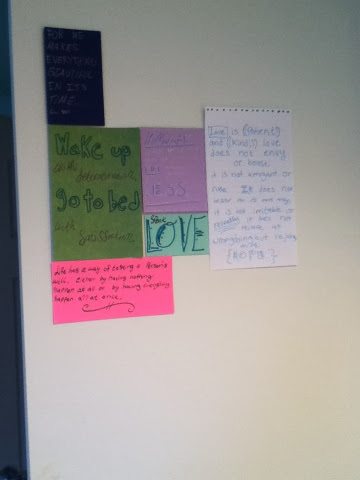 FOR HE
MAKES
EVERYTHING
BEAUTIFUL
IN ITS
TIME
Wake up
with
go to bed
with Satisfaction
IS
LOVE
Love is {Patient}
and {Kind,} love
does not envy
or boast.
it is not arrogant or
rude. It does not
insist on its own way.
it is not irritable or
resentful it does not
rejoice at
wrongdoing but rejoices
with
{HOPE}
Life has a way of testing a Person's
will. Either by having nothing
happen at all or by having everything
happen all at once.